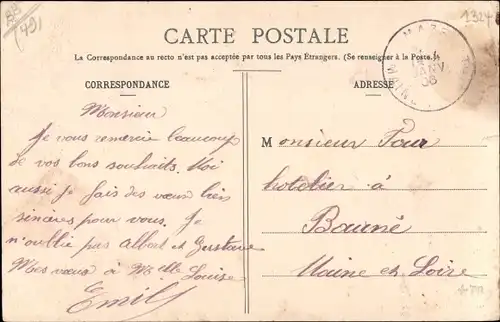 88
(49)
1324
CARTE POSTALE
La Correspondance au recto n'est pas acceptée par tous les Pays Étrangers. (Se renseigner à la Poste.)
CORRESPONDANCE
ADRESSE
JANV.
08
Monsieur
Je vous remercie beaucoup
de vos bons souhaits. Moi
aussi je fais des vœux bien
sincères pour vous. Je
n'oublie pas Albert et Gustave
Mes vœux à Melle Louise
Emily
Monsieur
hotelier à
Bauné
Maine et Loire